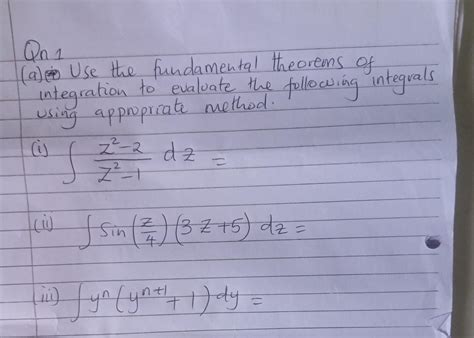 Qn.1
(a) Use the fundamental theorems of
integration to evaluate the following integrals
using appropriate method.
(i) ∫ (z²-2)/(z²-1) dz =
(ii) ∫ sin(z/4)(3z+5) dz =
(iii) ∫ yⁿ(yⁿ⁺¹+1) dy =